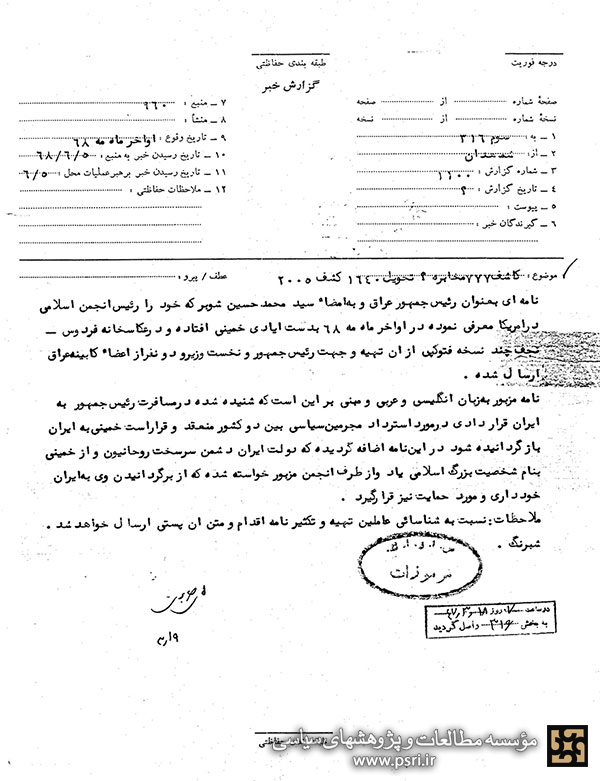 درجه فوریت
طبقه بندی حفاظتی
گزارش خبر
صفحهٔ شماره از صفحه
نسخهٔ شماره از نسخه
۱ ـ به : سوم ۳۱۶
۲ ـ از:
۳ ـ شماره گزارش : ۱۱۰۰
۴ ـ تاریخ گزارش : ؟
۵ ـ پیوست :
۶ ـ گیرندگان خبر :
۷ ـ منبع : ۹۶۰
۸ ـ منشأ :
۹ ـ تاریخ وقوع : اواخر ماه مه ۶۸
۱۰ ـ تاریخ رسیدن خبر به منبع : ۶۸/۶/۵
۱۱ ـ تاریخ رسیدن خبر برهبر عملیات محل : ۶/۵
۱۲ ـ ملاحظات حفاظتی :
موضوع : کاشف ۷۷۷ مخابره ؟ تحویل ۱۶۴۰ کشف ۲۰۰۵ عطف / پیرو :
نامه ای بعنوان رئیس جمهور عراق و به امضاء سید محمد حسین شوبر که خود را رئیس انجمن اسلامی
در امریکا معرفی نموده در اواخر ماه مه ۶۸ بدست ایادی خمینی افتاده و در عکاسخانه فردوس ـ
نجف چند نسخه فتوکپی از ان تهیه و جهت رئیس جمهور و نخست وزیر و دو نفر از اعضاء کابینه عراق
ارسال شده .
نامه مزبور به زبان انگلیسی و عربی و مبنی بر این است که شنیده شده در مسافرت رئیس جمهور به
ایران قرار دادی در مورد استرداد مجرمین سیاسی بین دو کشور منعقد و قرار است خمینی به ایران
باز گردانیده شود در این نامه اضافه گردیده که دولت ایران دشمن سرسخت روحانیون و از خمینی
بنام شخصیت بزرگ اسلامی یاد و از طرف انجمن مزبور خواسته شده که از برگردانیدن وی به ایران
خود داری و مورد حمایت نیز قرار گیرد .
ملاحظات : نسبت به شناسائی عاملین تهیه و تکثیر نامه اقدام و متن ان پستی ارسال خواهد شد .
شبرنگ .
مرموزات
در ساعت روز
به بخش ۳۱۶ واصل گردید
طبقه بندی حفاظتی
مؤسسه مطالعات و پژوهشهای سیاسی
www.psri.ir